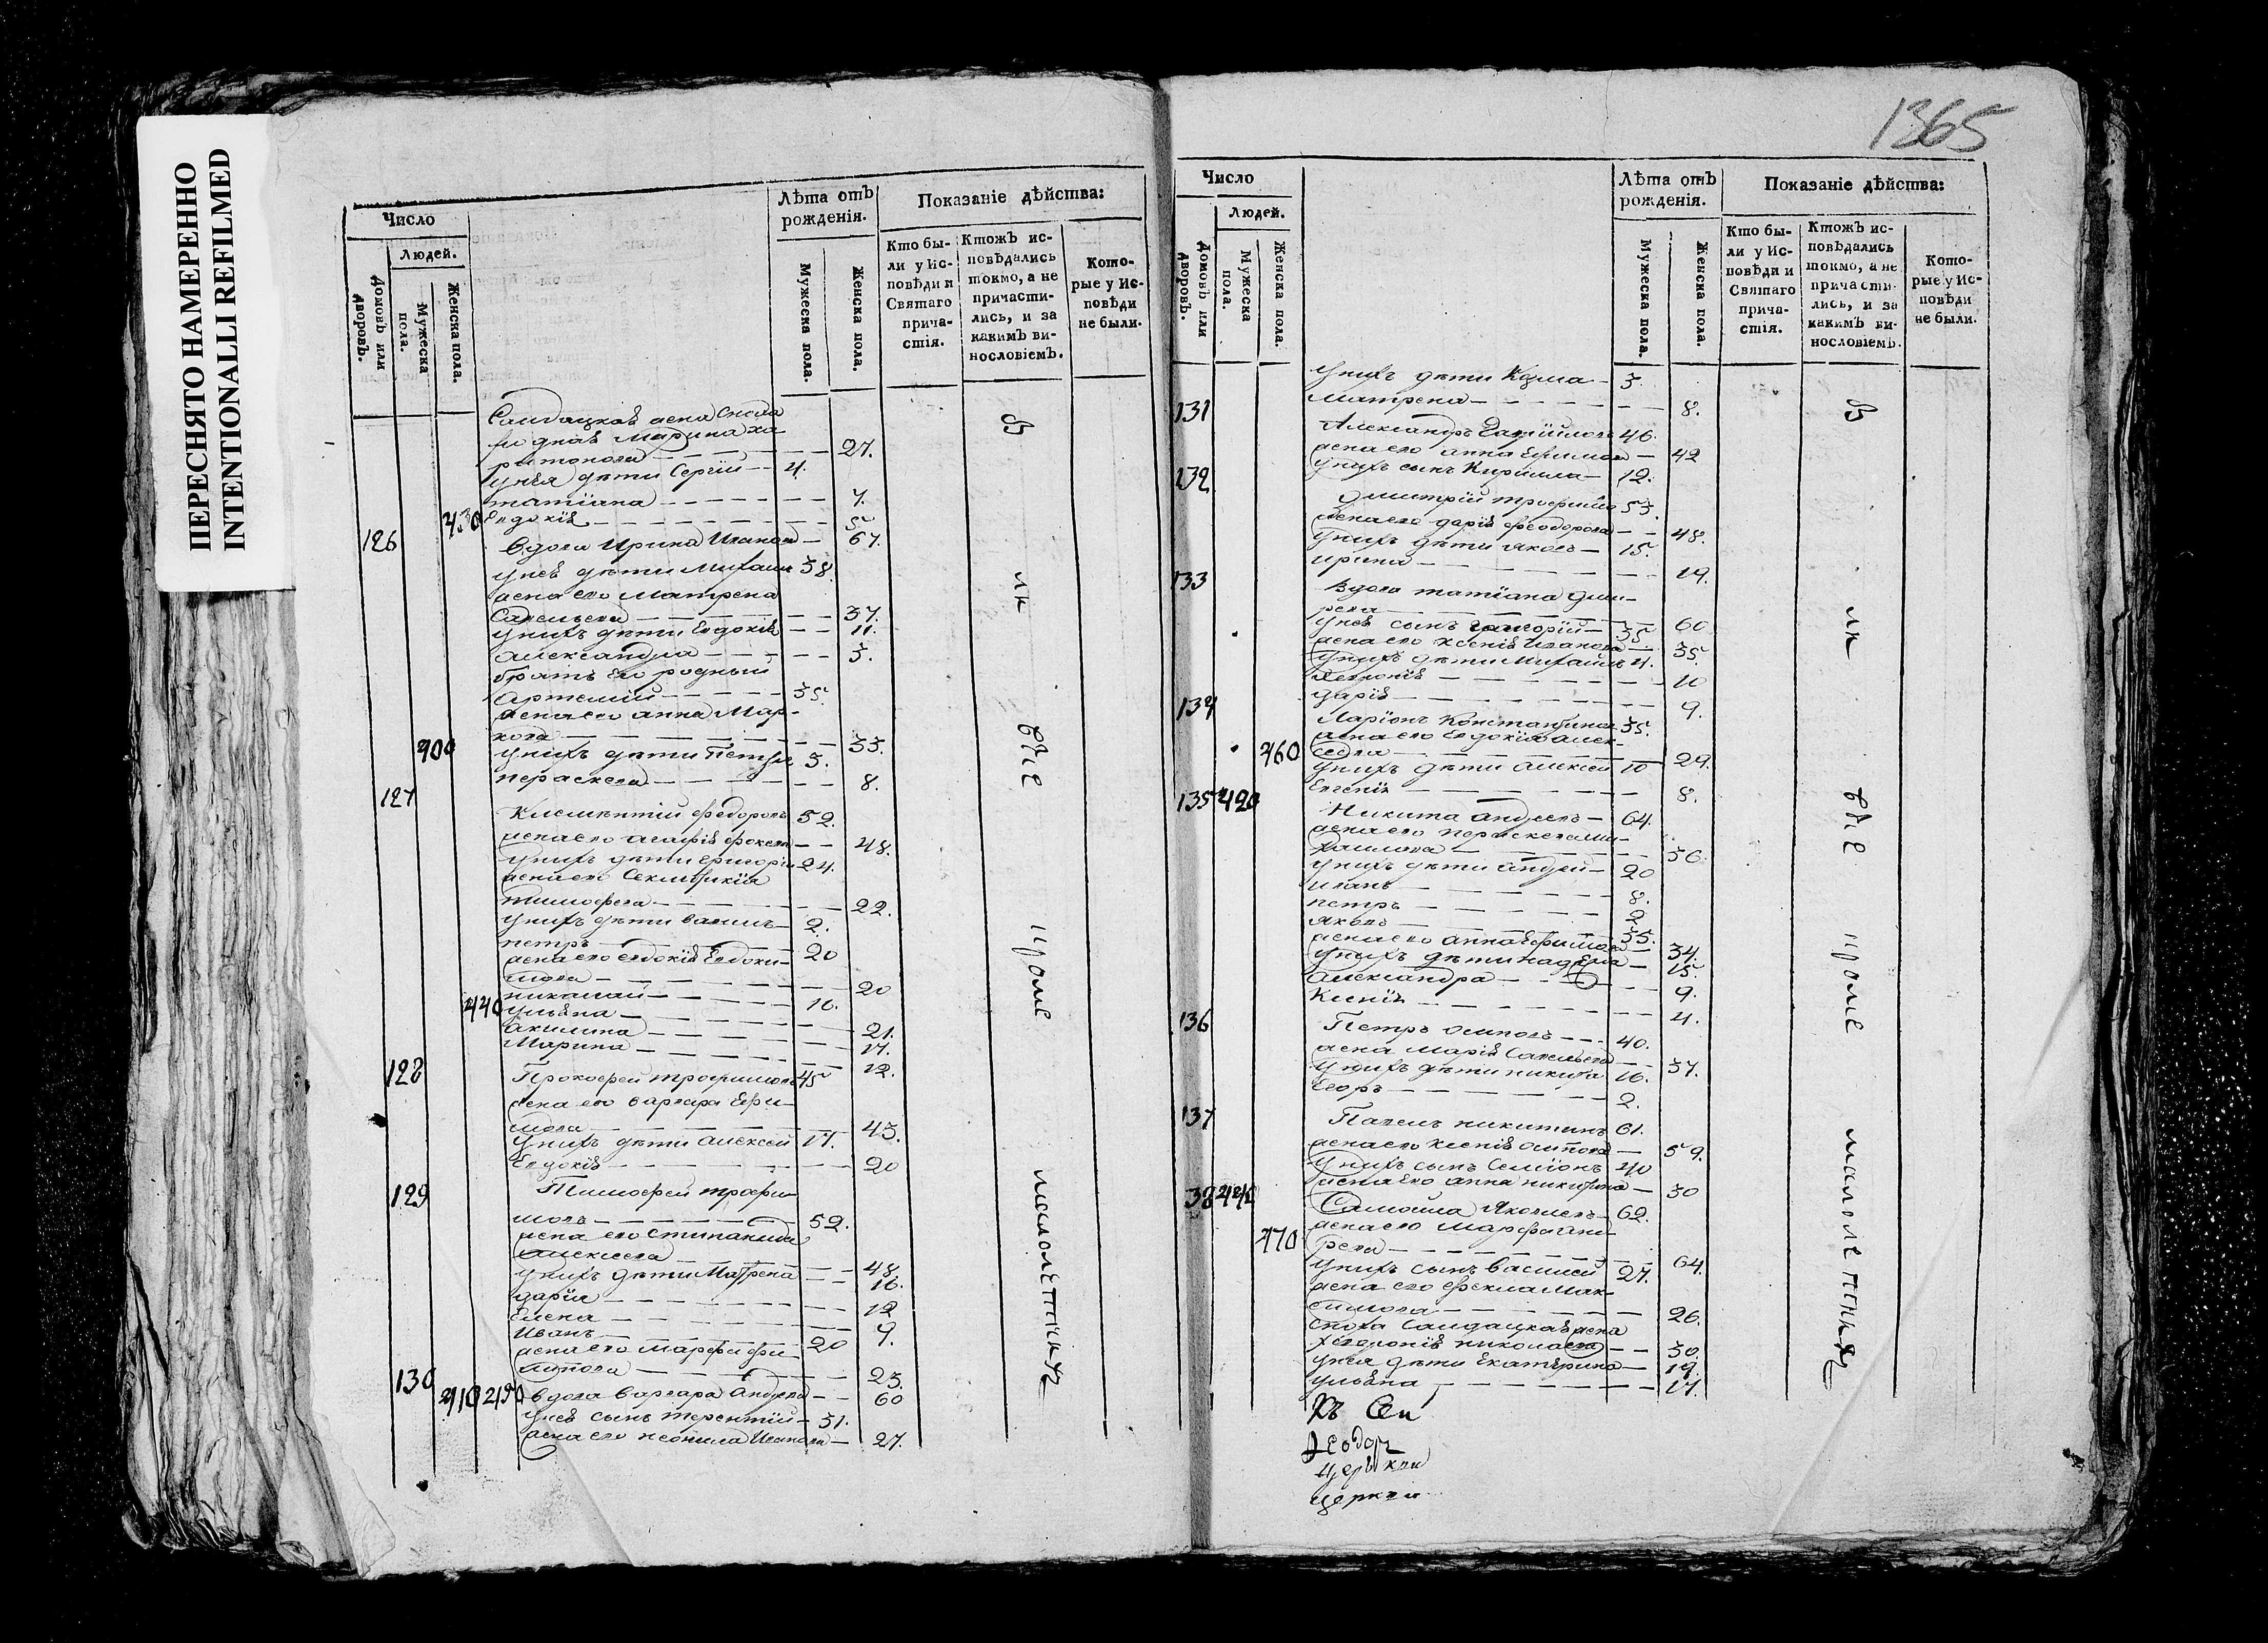 ПЕРЕСНЯТО НАМЕРЕННО
INTENTIONALLI REFILMED
Число
Людей.
Домовъ или дворовъ.
Мужеска пола.
Женска пола.
Лѣта отъ рожденія.
Мужеска пола.
Женска пола.
Показаніе дѣйства:
Кто бы-
ли у Ис-
повѣди и
Святаго
прича-
стія.
Ктожъ ис-
повѣдались
токмо, а не
причасти-
лись, и за
какимъ ви-
нословіемъ.
Кото-
рые у Ис-
повѣди
не были.
Солдацкая жена
Марина Ха
ритонова 27.
у нея дѣти Сергій 4.
татіана 7.
430 Евдокія 5
126 Вдова Ирина Иванова 67.
у нея дѣти Михаилъ 38.
жена его Матрена
Савельева 37.
у нихъ дѣти Евдокія 11.
александра 3.
братъ его родный
Артемій 35.
жена его анна Мар-
кова 33.
400 у нихъ дѣти Петръ 3.
параскева 8.
127 Климентій федоровъ 52.
жена его агафія 48.
у нихъ дѣти григорій 24.
жена его
тимофева 22.
у нихъ дѣти 2.
петръ 20
жена его евдокія Евдоки-
мова 20
николай 10.
440 ульяна 21.
акилина 17.
Марина 12.
128 Прокофей трофимовъ 45
жена его варвара Ефи-
мова 43.
у нихъ дѣти алексей 17.
Евдокія 20
129 Тимофей трофи-
мовъ 52.
жена его степанида
алексеева 48.
у нихъ дѣти Матрена 16.
дарія 12
Елена 9.
Иванъ 20
жена его марфа фи-
липова 23.
130 410 450 вдова варвара 60
у нея сынъ терентій 31.
жена его неонила Иванова 27.
в
лк
вѣе
кроме
малолѣтнихъ
1365
Число
Людей.
Домовъ или дворовъ.
Мужеска пола.
Женска пола.
Лѣта отъ рожденія.
Мужеска пола.
Женска пола.
Показаніе дѣйства:
Кто бы-
ли у Ис-
повѣди и
Святаго
прича-
стія.
Ктожъ ис-
повѣдались
токмо, а не
причасти-
лись, и за
какимъ ви-
нословіемъ.
Кото-
рые у Ис-
повѣди
не были.
у нихъ дѣти Козма 3
матрена 8.
131 Александръ 46.
жена его анна Ефимова 42
у нихъ сынъ Кирилла 12.
132 Дмитрій трофимо 53.
жена его дарія феодорова 48.
у нихъ дѣти яковъ 15.
ирина 19.
133 Вдова татіана
60
у нея сынъ григорій 35
жена его ксенія Иванова 35.
у нихъ дѣти Михаилъ 4.
10
дарія 9.
134 Ларіонъ Константинов 35.
жена его Евдокія алек-
460 сеева 29.
у нихъ дѣти алексей 10
Евгенія 8.
135 420 Никита андреевъ 64.
жена его параскева ми-
хайлова 56.
у нихъ дѣти андрей 20
иванъ 8.
петръ 2
яковъ 35.
жена его анна ефимова 34.
у нихъ дѣти надежа 15
александра 9.
Ксенія 4.
136 Петръ осиповъ 40.
жена марія Савельева 37.
у нихъ дѣти никита 16.
Егоръ 2.
137 Павелъ никитинъ 61.
жена его ксенія осипова 59.
у нихъ сынъ Семіонъ 40
жена его анна никитина 30
138 Самоила Яковлевъ 62.
жена его Марфа
470 64.
у нихъ сынъ василей 27.
жена его фекла мак-
симова 26.
сноха солдацкая жена
николаева 30.
у нея дѣти Екатерина 19.
ульяна 17.
Къ Сеи
церкви
в
лк
вѣе
кроме
малолетнихъ